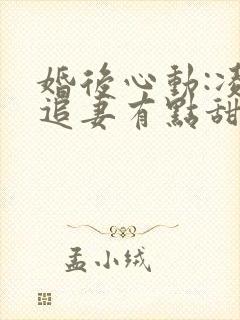 婚後心動:凌
追妻有點甜
孟小绒